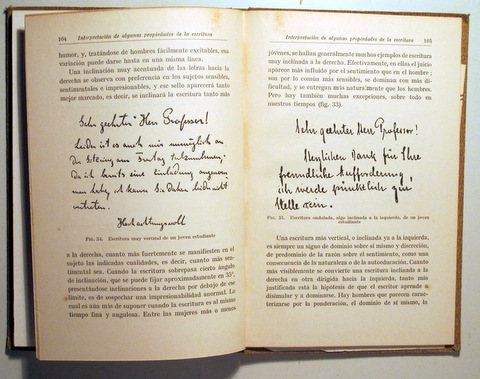 104 Interpretación de algunas propiedades de la escritura
humor, y, tratándose de hombres fácilmente excitables, esa
variación puede darse hasta en una misma línea.
Una inclinación muy acentuada de las letras hacia la
derecha se observa con preferencia en los sujetos sensibles,
sentimentales o impresionables, y ese sello aparecerá tanto
mejor marcado, es decir, se inclinará la escritura tanto más
Sehr geehrter Herr Professor!
Leider ist es auch mir unmöglich an
der Sitzung am Freitag teilzunehmen.
Da ich bereits eine Einladung angenom-
men habe, ich kann Sie daher leider nicht
vertreten.
Hochachtungsvoll
FIG. 34. Escritura muy vertical de un joven estudiante
a la derecha, cuanto más fuertemente se manifiesten en el
sujeto las indicadas cualidades, es decir, cuanto más sen-
timental sea. Cuando la escritura sobrepasa cierto ángulo
de inclinación, que se puede fijar aproximadamente en 35°,
presentándose inclinaciones a la derecha por debajo de ese
límite, es de sospechar una impresionabilidad anormal. Lo
cual es aún más de suponer cuando la escritura es al mismo
tiempo fina y angulosa. Entre las mujeres más o menos
Interpretación de algunas propiedades de la escritura 105
jóvenes, se hallan generalmente muchos ejemplos de escritura
muy inclinada a la derecha. Efectivamente, en ellas el juicio
aparece más influido por el sentimiento que en el hombre;
son por lo común más sensibles, se dominan con más di-
ficultad, y se entregan más naturalmente que los hombres.
Pero hay también muchas excepciones, sobre todo en
nuestros tiempos (fig. 33).
Sehr geehrter Herr Professor!
Herzlichen Dank für Ihre
freundliche Aufforderung,
ich werde pünktlich zur
Stelle sein.
FIG. 35. Escritura ondulada, algo inclinada a la izquierda, de un joven
estudiante
Una escritura más vertical, o inclinada ya a la izquierda,
es siempre un signo de dominio sobre sí mismo y discreción,
de predominio de la razón sobre el sentimiento, como una
consecuencia de la naturaleza o de la autoeducación. Cuanto
más visiblemente se convierte una escritura inclinada a la
derecha en otra dirigida hacia la izquierda, tanto más
justificada está la hipótesis de que el escritor aprende a
disimular y a dominarse. Hay hombres que parecen carac-
terizarse por la ponderación, el dominio de sí mismo, la